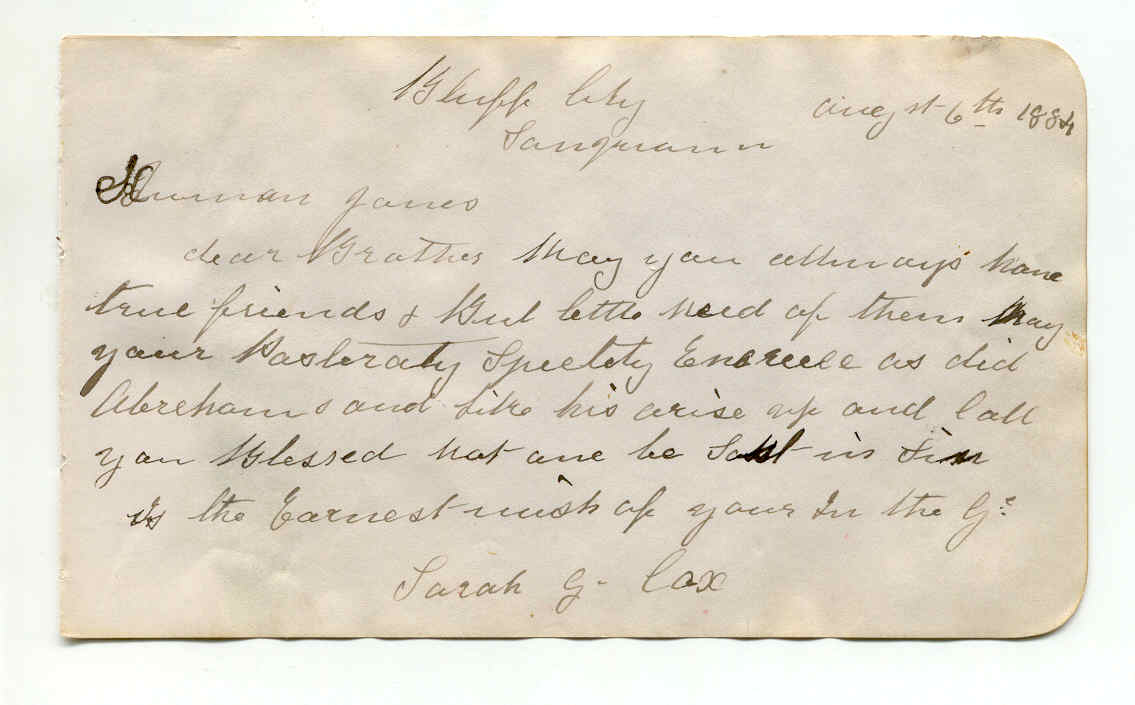 Bluff City
augst 6th 1884
Sanquann
Human Jones
dear Brother May you allways have
true friends & But little need of them May
your Posteraty Speetety Encreece as did
Abreham's and like his arise up and Call
you Blessed Not one be Lost in Sin
Is the Earnest wish of your In the G:
Sarah G. Cox